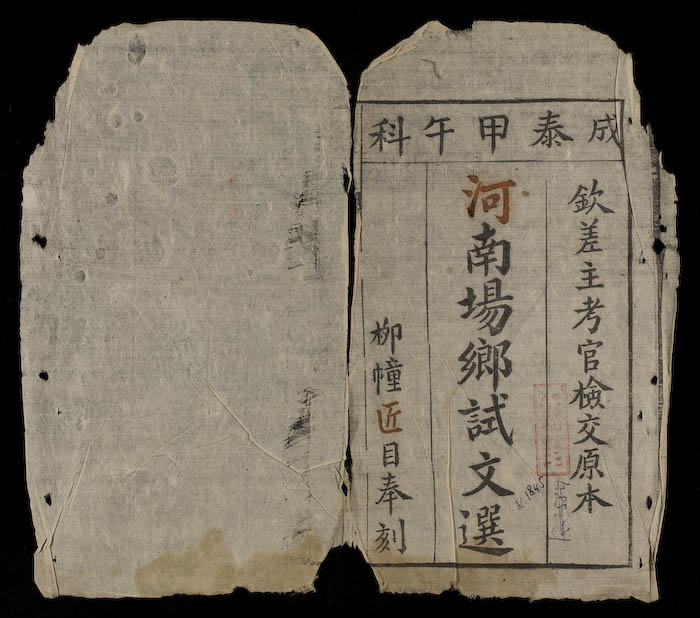 成泰甲午科
欽差主考官檢交原本
河南場鄉試文選
柳幢近目奉刻